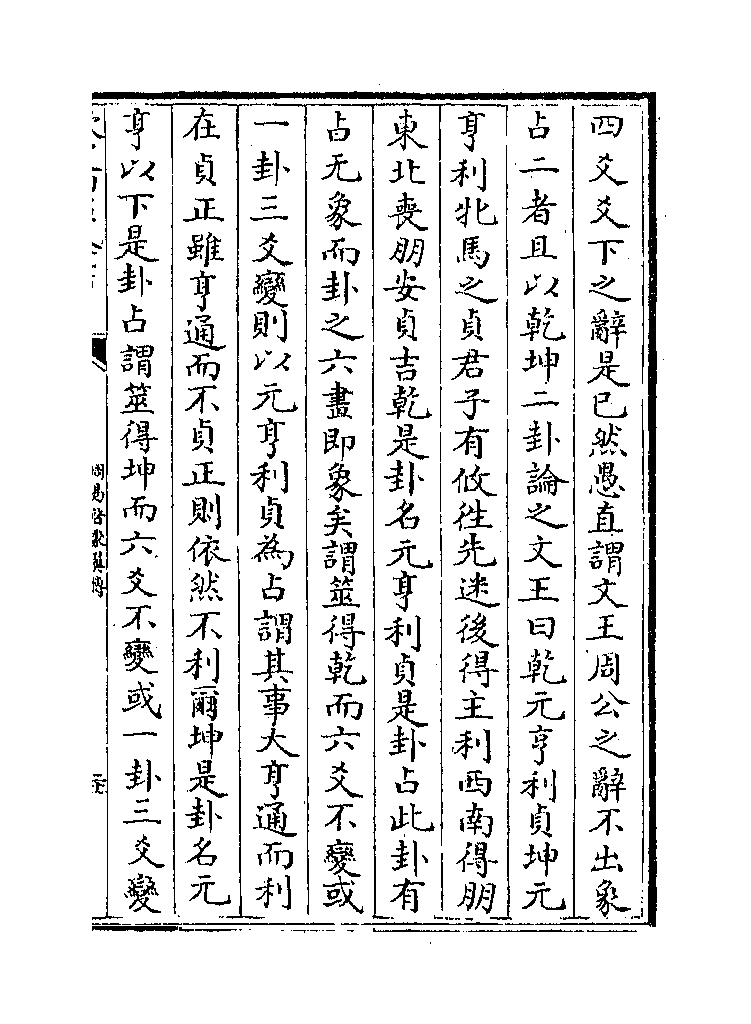 四爻爻下之辭是已然愚直謂文王周公之辭不出象
占二者且以乾坤二卦論之文王曰乾元亨利貞坤元
亨利牝馬之貞君子有攸徃先迷後得主利西南得朋
東北喪朋安貞吉乾是卦名元亨利貞是卦占此卦有
占无象而卦之六畫即象矣謂筮得乾而六爻不變或
一卦三爻變則以元亨利貞為占謂其事大亨通而利
在貞正雖亨通而不貞正則依然不利爾坤是卦名元
亨以下是卦占謂筮得坤而六爻不變或一卦三爻變